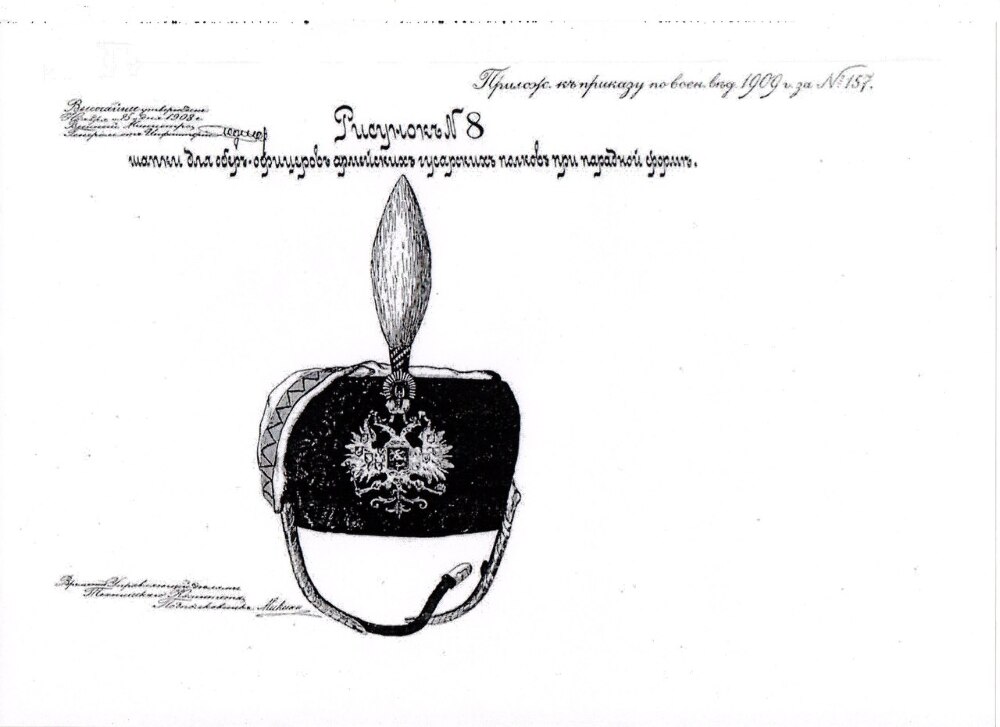 Прилож. къ приказу по воен. вѣд. 1909 г. за № 157.
Высочайше утверждено
Ноября дня 1908 г.
Военный Министръ,
Генералъ отъ Инфантеріи
Рисунокъ № 8
шапки для оберъ-офицеровъ армейскихъ гусарскихъ полковъ при парадной формѣ.
Управляющій дѣлами
Техническаго Комитета,
Подполковникъ